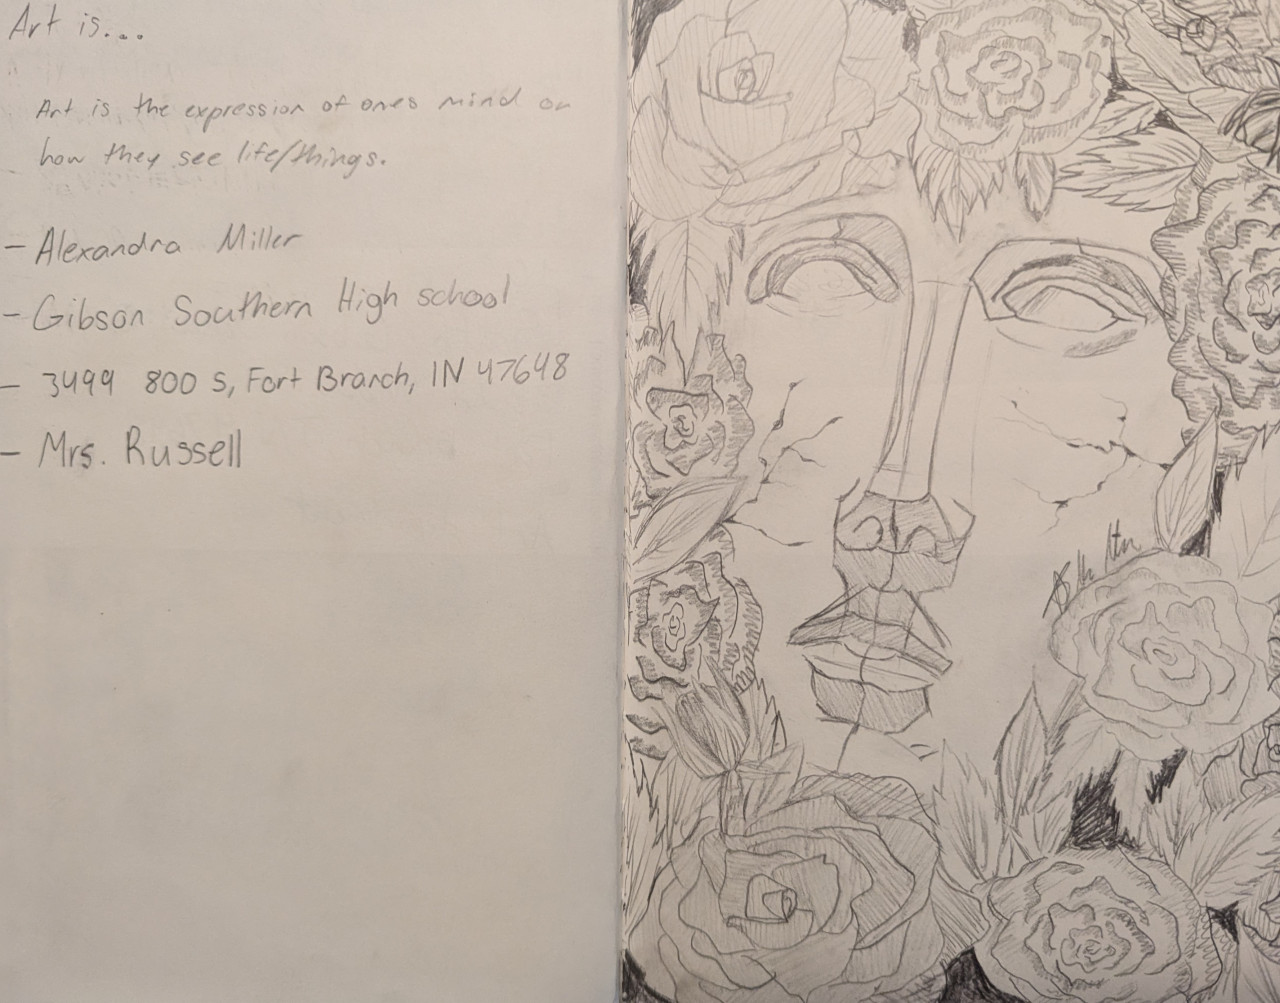 Art is...
Art is the expression of ones mind or
how they see life/things.
- Alexandra Miller
- Gibson Southern High school
- 3499 800 S, Fort Branch, IN 47648
- Mrs. Russell